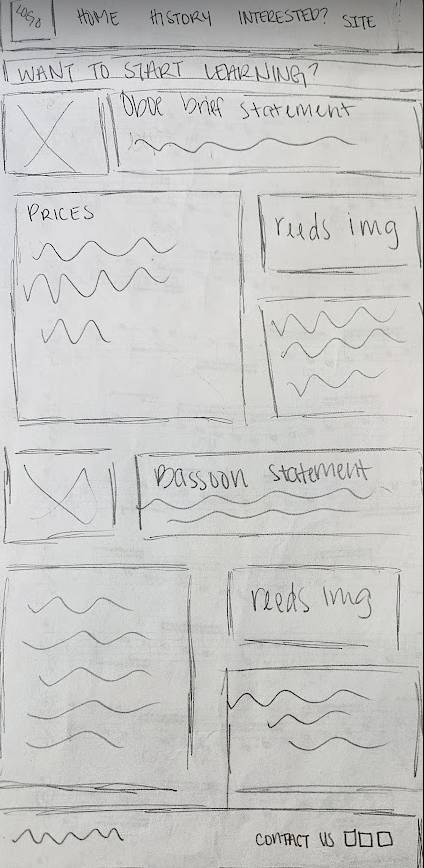 LOGO
HOME HISTORY INTERESTED? SITE
WANT TO START LEARNING?
Oboe brief statement
PRICES
reeds img
Bassoon statement
reeds img
CONTACT US